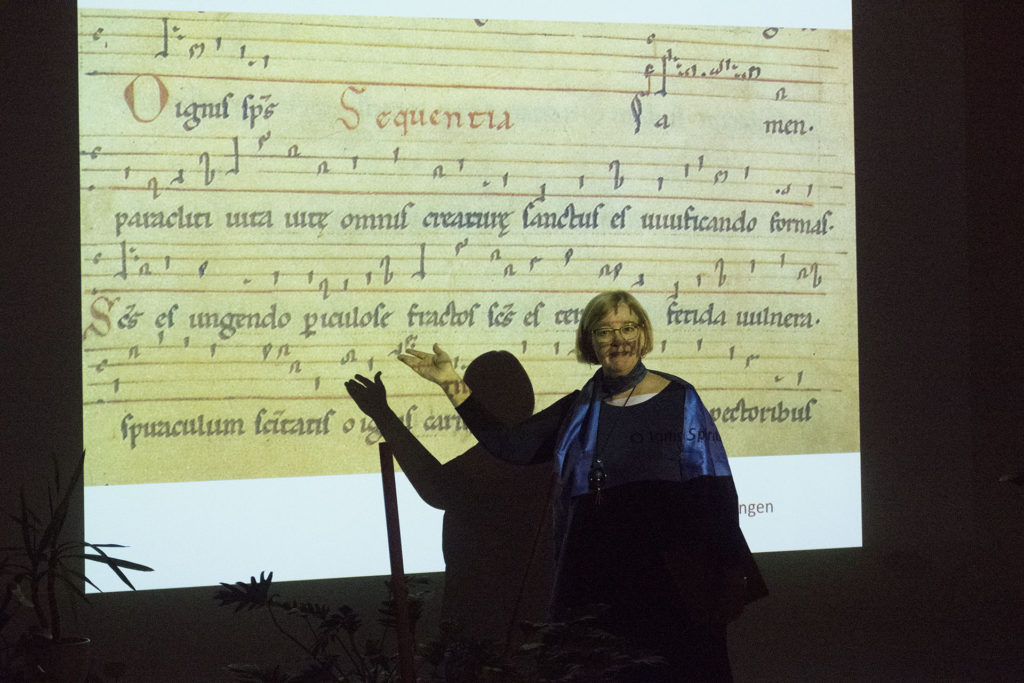 O ignis sp̄s Sequentia a men.
paracliti uita uitę omnis creaturę sanctus es uiuificando formas.
Sc̄s es ungendo ꝑiculose fractos sc̄s es fetida uulnera.
spiraculum sc̄itatis o ignis pectoribus
O ignis
ngen